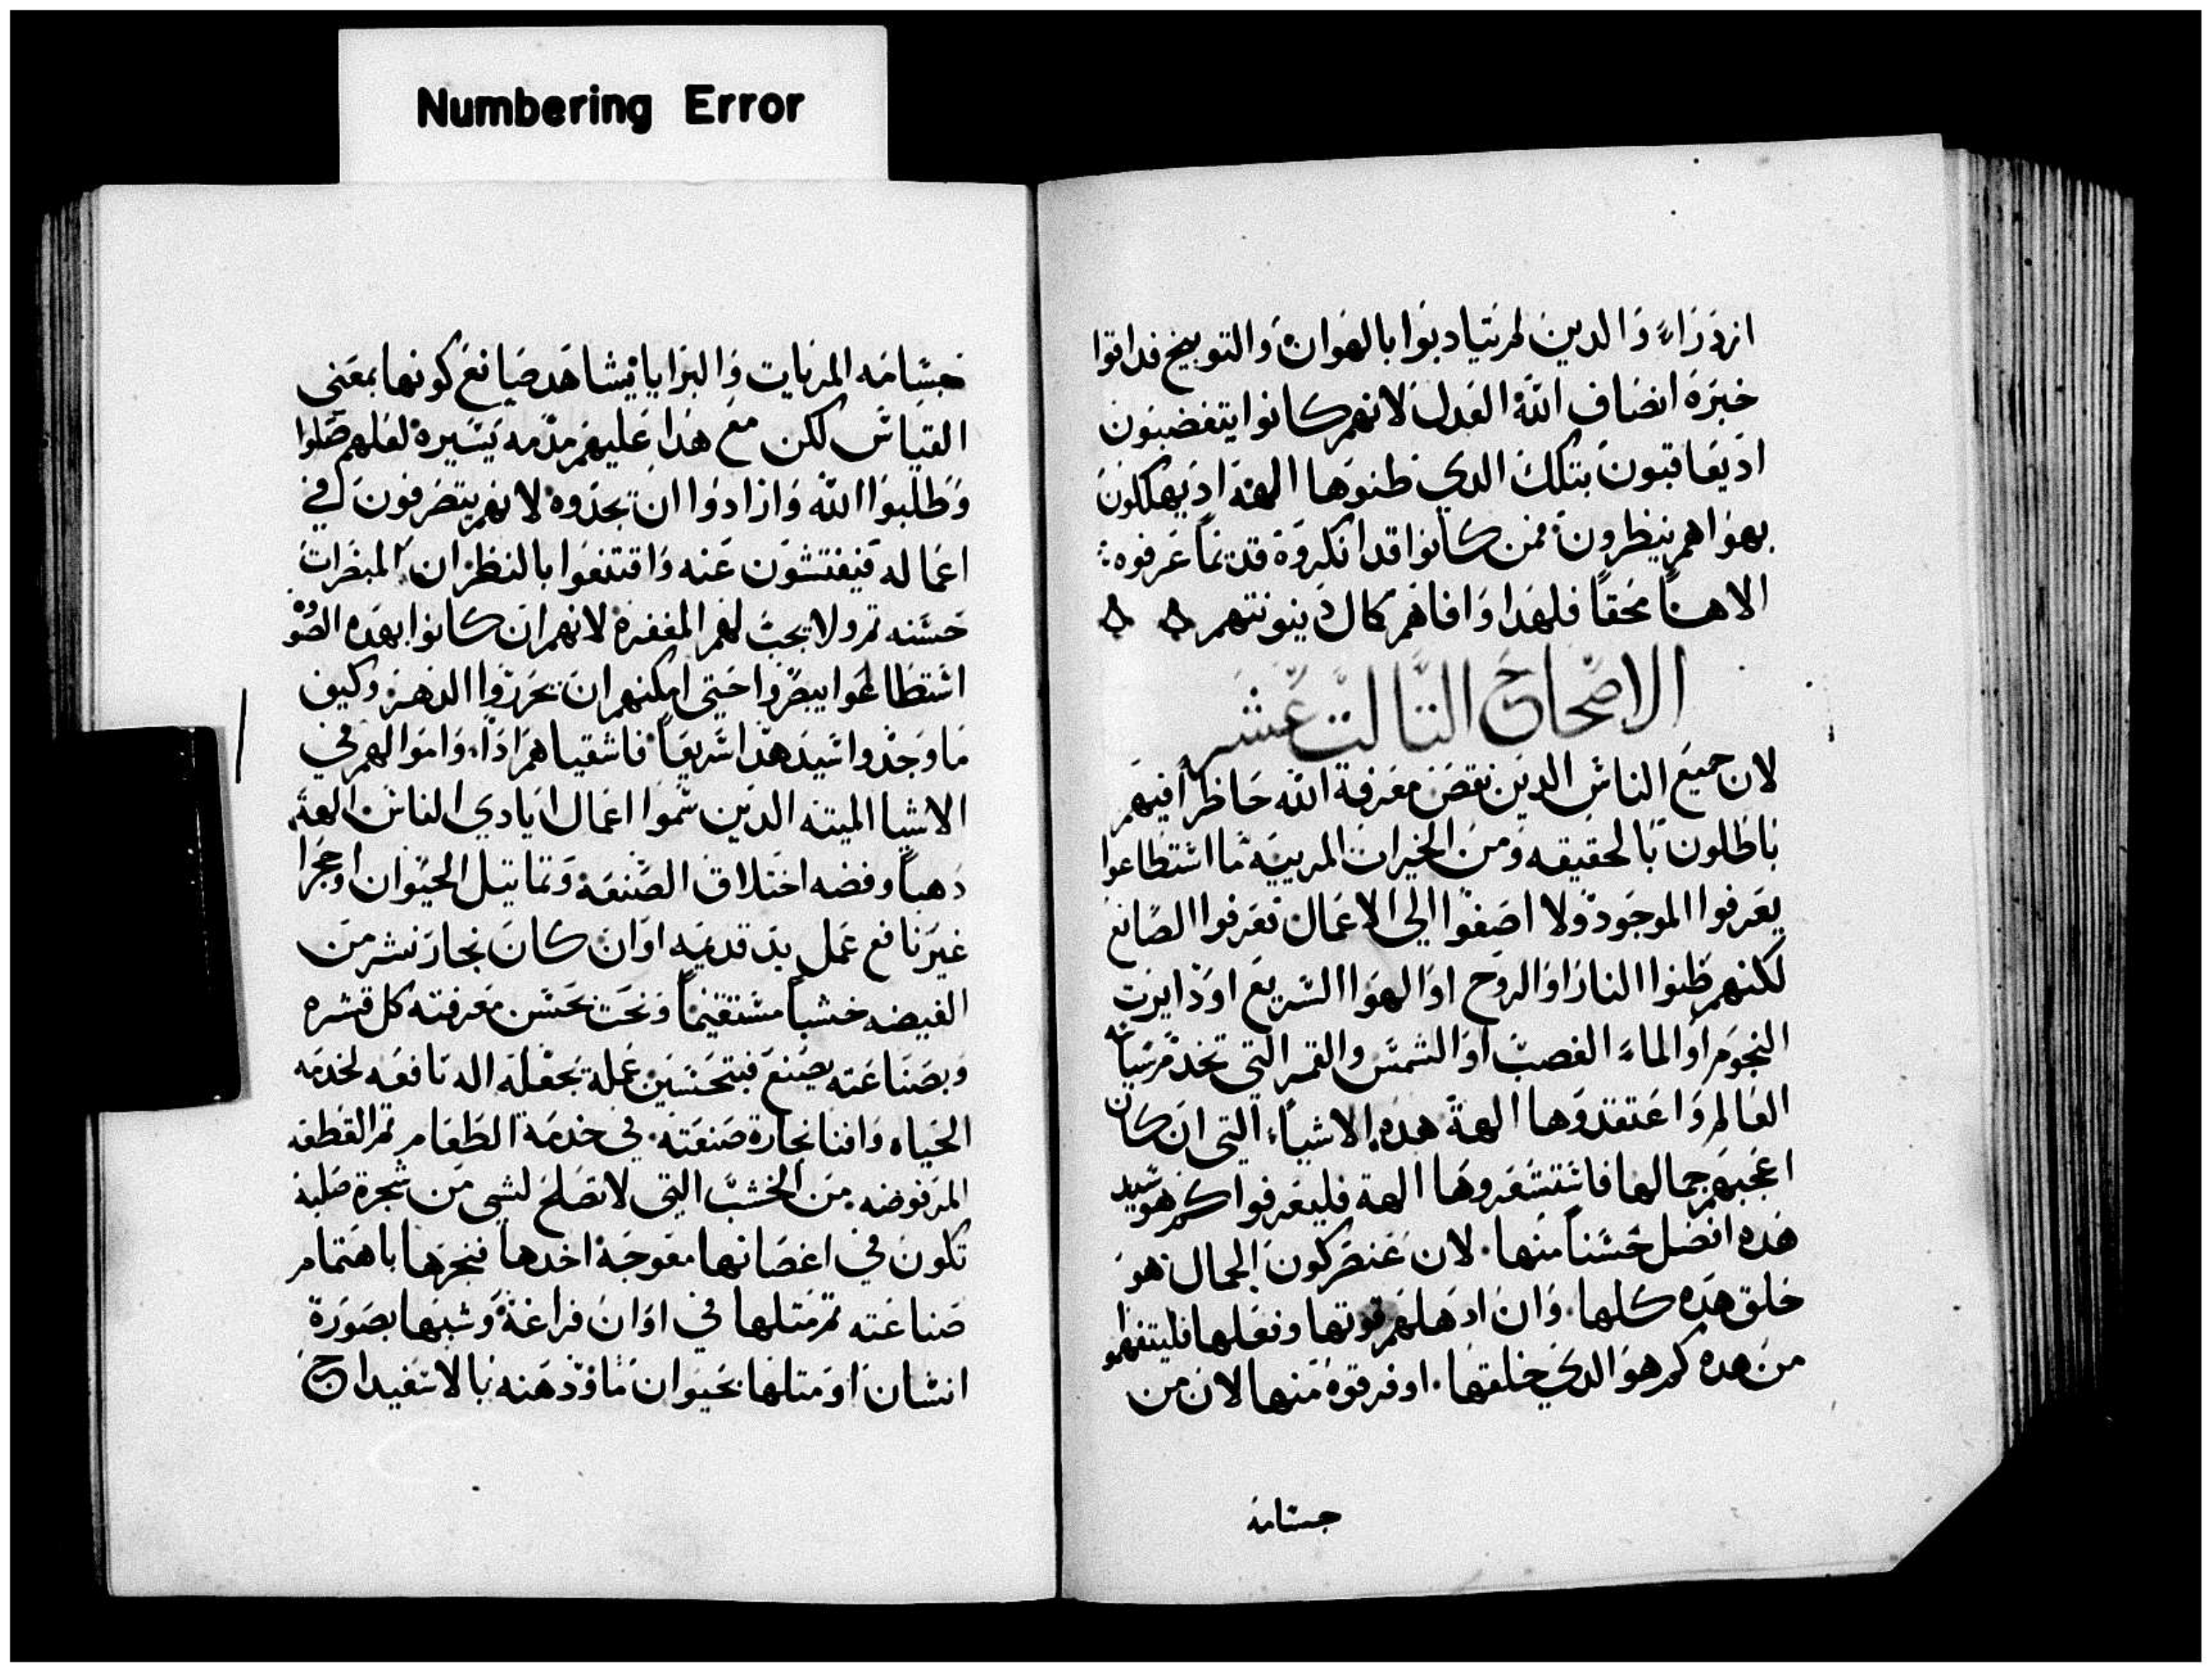 Numbering Error
ازدراء والدين لم يتادبوا بالهوان والتوبيخ فداقوا
خبرة انصاف الله العدل لانهم كانوا يتغضبون
اد يعاقبون بتلك الدي ظنوها الهة اد يهلكون
بهوا هم ينظرون ممن كانوا قد انكروه قديما عرفوه
الاهنا محقا فلهدا وافاهم كمال دينونتهم
الاصحاح التالت عشر
لان جميع الناس الدين نقص معرفة الله حاظرا فيهم
باطلون بالحقيقه ومن الخيرات المرييه ما استطاعوا
يعرفوا الموجود ولا اصغوا الي الاعمال تعرفوا الصانع
لكنهم ظنوا النار او الروح او الهوا السريع او دايرت
النجوم او الماء الغصب او الشمس والقمر التي تخدم سياسة
العالم واعتقدوها الهة هده الاشياء التي ان كان
اعجبهم جمالها فاستشعروها الهة فليعرفوا كم هو سيد
هده افضل حسنا منها لان عنصر كون الجمال هو
خلق هده كلها وان ادهلهم قوتها وفعلها فليتفهموا
من هده كم هو الدي خلقها اوفر قوة منها لان من
جسامة
جسامه المريات والبرايا يشاهد صانع كونها بمعني
القياس لكن مع هدا عليهم مدمه يسيرة لعلهم ضلوا
وطلبوا الله وارادوا ان يجدوه لانهم يتصرفون في
اعماله فيفتشون عنه واقتنعوا بالنظر ان المبصرات
حسنه تم ولا يجب لهم المغفرة لانهم ان كانوا بهده الصوره
استطاعوا يبصروا حتي امكنهم ان يحرزوا الدهر وكيف
ما وجدوا سيد هدا سريعا فاشقياهم ادا واموالهم في
الاشيا الميته الدين سموا اعمال ايادي الناس الهة
دهبا وفضه اختلاق الصنعة وتماتيل الحيوان او حجرا
غير نافع عمل يد قديمه او ان كان نجار نشر من
الغيضه خشبا مستقيما ونحت بحسن معرفته كل قشره
وبصناعته يصنع فبتحسين عمله يجعله اله نافعه لخدمه
الحياه وافنا نجارة صنعته في خدمة الطعام تم القطعه
المرفوضه من الخشب التي لا تصلح لشي من شجرة صلبة
تكون في اغصانها معوجة اخدها فنجرها باهتمام
صناعته تم متلها في اوان فراغة وشبهها بصورة
انسان او متلها بحيوان ما ودهنه بالاسفيداج